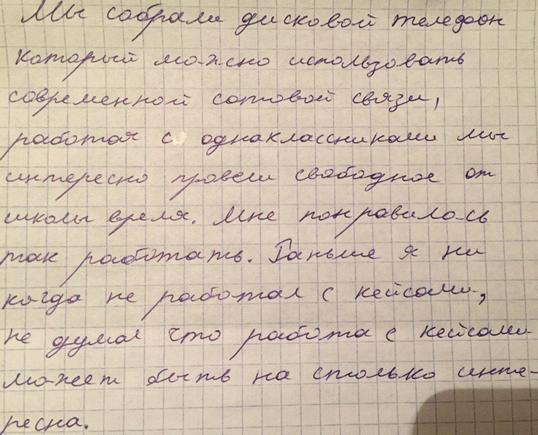 Мы собрали дисковой теледоон
который можно использовать
современной сотовой связи,
работая с однаклассниками мы
интересно провели свободное от
школы время. Мне понравилось
так работать. Раньше я ни
когда не работал с кейсами,
не думал что работа с кейсами
может быть на столько инте-
ресна.